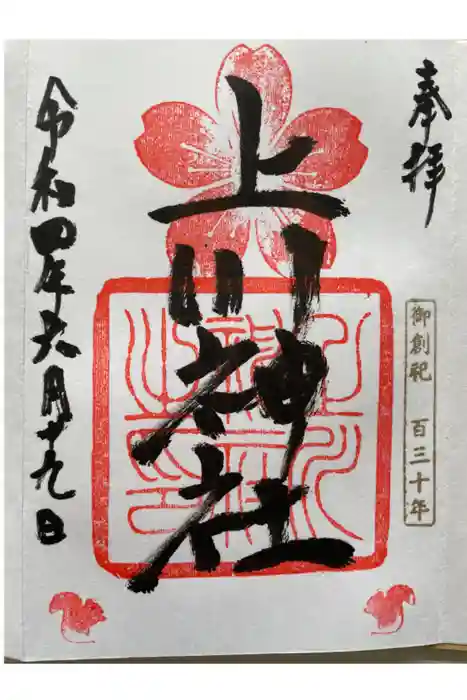 奉拝
御創祀 百三十年
上川神社
令和四年六月十九日